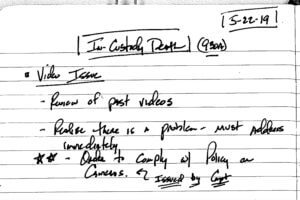 5-22-19
In-Custody Death (930A)
▪ Video Issue
- Review of past videos
- Realize there is a problem - must address
immediately
** - Order to comply w/ Policy on
Cameras. Issued by Capt